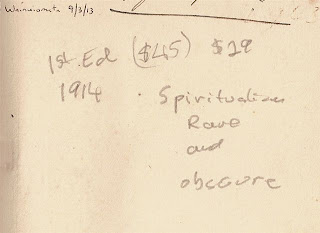 9/3/13
1st. Ed ($45) $29
1914 . Spiritualism
Rare
and
obscure